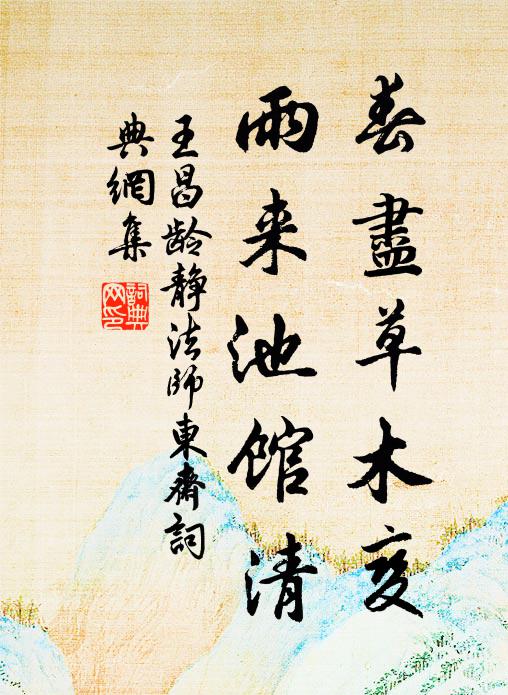 春盡草木变
雨来池馆清
王昌龄静法師東齋詞
典網集
詞典
网印